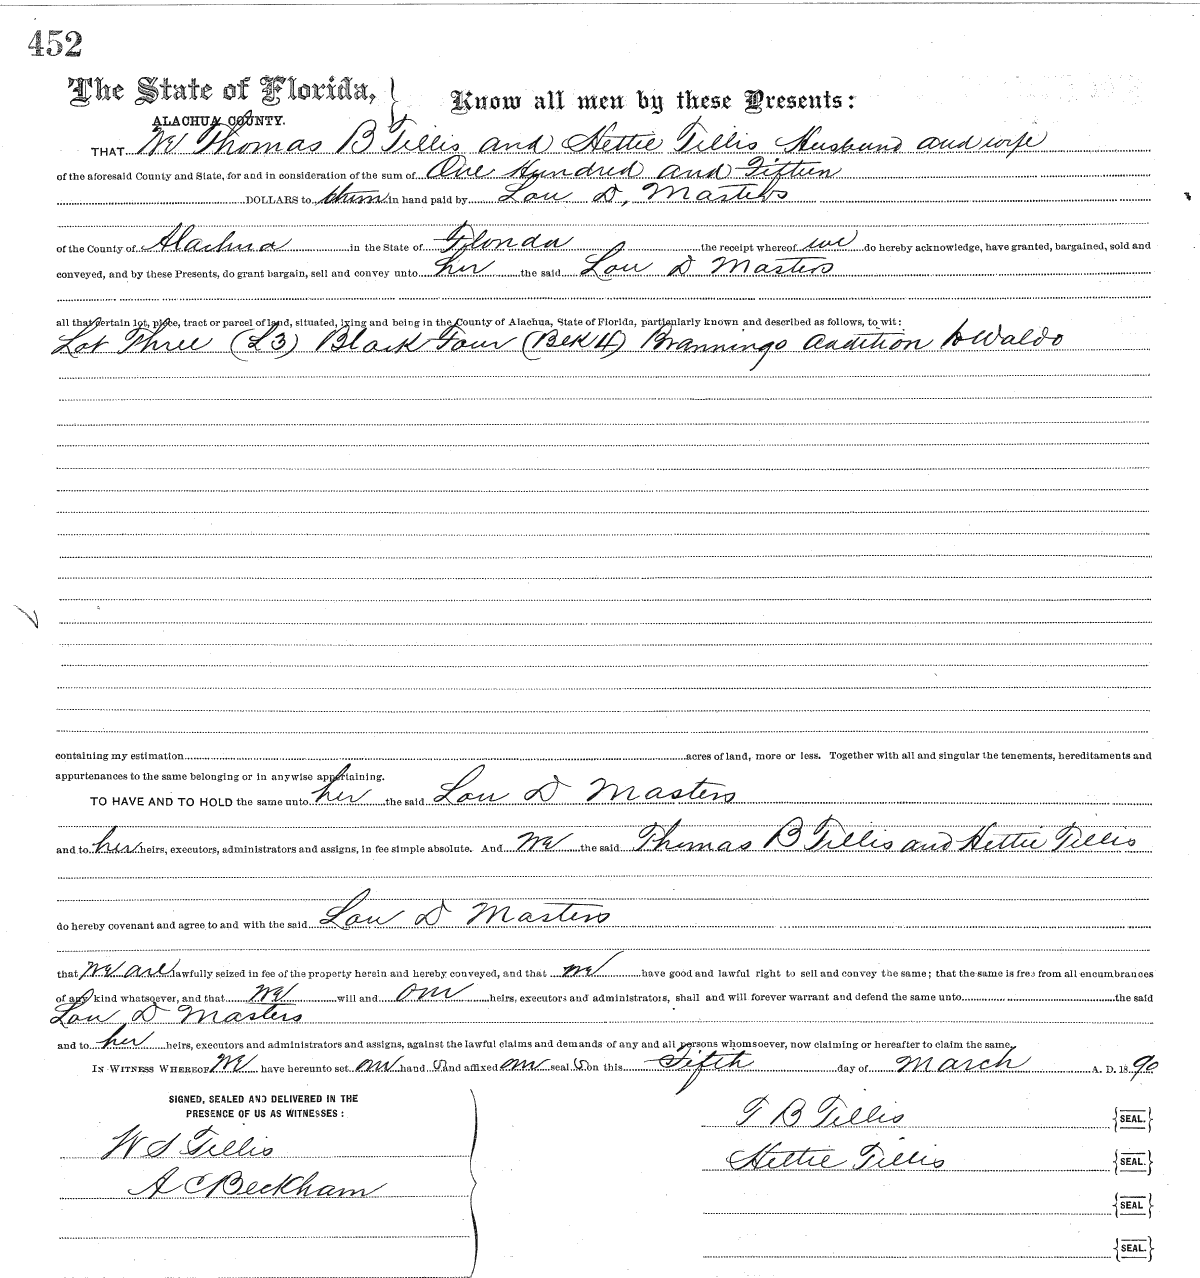 452
The State of Florida,
ALACHUA COUNTY.
Know all men by these Presents:
THAT We Thomas B Tillis and Hettie Tillis Husband and wife
of the aforesaid County and State, for and in consideration of the sum of One Hundred and Fifteen
DOLLARS to them in hand paid by Lou D, Masters
of the County of Alachua in the State of Florida the receipt whereof we do hereby acknowledge, have granted, bargained, sold and
conveyed, and by these Presents, do grant bargain, sell and convey unto her the said Lou D Masters
all that certain lot, piece, tract or parcel of land, situated, lying and being in the County of Alachua, State of Florida, particularly known and described as follows, to wit:
Lot Three (L3) Block Four (Blk 4) Brannings Addition to Waldo
containing my estimation acres of land, more or less. Together with all and singular the tenements, hereditaments and
appurtenances to the same belonging or in anywise appertaining.
TO HAVE AND TO HOLD the same unto her the said Lou D Masters
and to her heirs, executors, administrators and assigns, in fee simple absolute. And We the said Thomas B Tillis and Hettie Tillis
do hereby covenant and agree to and with the said Lou D Masters
that We are lawfully seized in fee of the property herein and hereby conveyed, and that we have good and lawful right to sell and convey the same; that the same is free from all encumbrances
of any kind whatsoever, and that We will and our heirs, executors and administrators, shall and will forever warrant and defend the same unto the said
Lou D Masters
and to her heirs, executors and administrators and assigns, against the lawful claims and demands of any and all persons whomsoever, now claiming or hereafter to claim the same.
IN WITNESS WHEREOF We have hereunto set our hand s and affixed our seal s on this Fifth day of March A. D. 18 90
SIGNED, SEALED AND DELIVERED IN THE
PRESENCE OF US AS WITNESSES:
T B Tillis SEAL.
W S Tillis
Hettie Tillis SEAL.
A C Beckham
SEAL
SEAL.